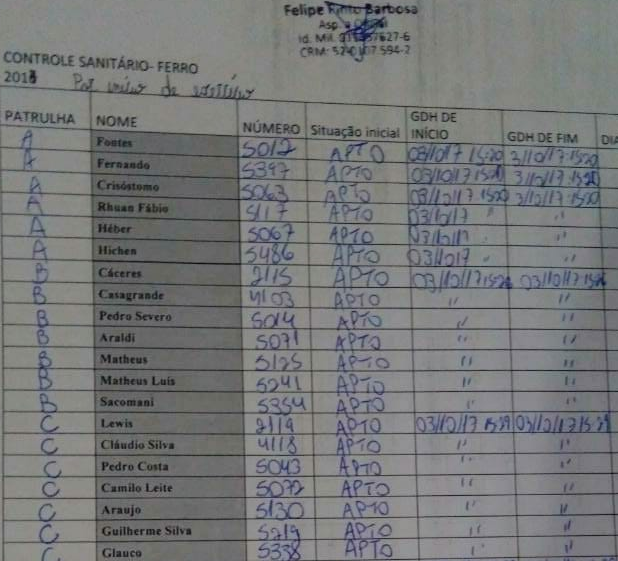 Felipe Pinto Barbosa
Asp
Id. Mil.
CRM:
CONTROLE SANITÁRIO- FERRO
201
de
PATRULHA NOME NÚMERO Situação inicial GDH DE INÍCIO GDH DE FIM DIA
A Fontes 5012 APTO 03/10/17 15:20 3/10/17 15:20
A Fernando 5397 APTO 03/10/17 15:20 3/10/17 15:20
A Crisóstomo 5063 APTO 03/10/17 1520 3/10/17 1520
A Rhuan Fábio 5117 APTO 03/10/17 " "
A Héber 5067 APTO 03/10/17 " "
A Hichen 5486 APTO 03/10/17 " "
B Cáceres 2115 APTO 03/10/17 03/10/17
B Casagrande 4103 APTO " "
B Pedro Severo 5014 APTO " "
B Araldi 5071 APTO " "
B Matheus 5125 APTO " "
B Matheus Luis 5241 APTO " "
B Sacomani 5354 APTO " "
C Lewis 2119 APTO 03/10/17 15:29 03/10/17 15:29
C Cláudio Silva 4118 APTO " "
C Pedro Costa 5043 APTO " "
C Camilo Leite 5072 APTO " "
C Araujo 5130 APTO " "
C Guilherme Silva 5219 APTO " "
C Glauco 5338 APTO " "